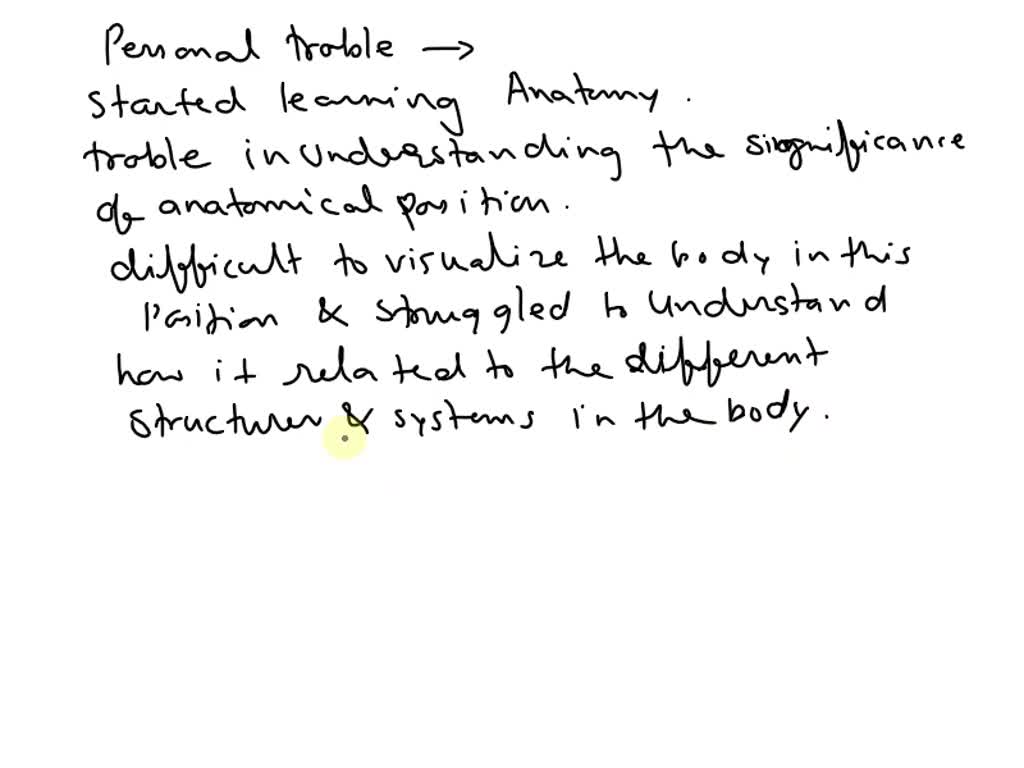 Personal troble →
Started learning Anatomy.
troble in understanding the significance
of anatomical position.
difficult to visualize the body in this
Position & struggled to understand
how it related to the different
structures & systems in the body.